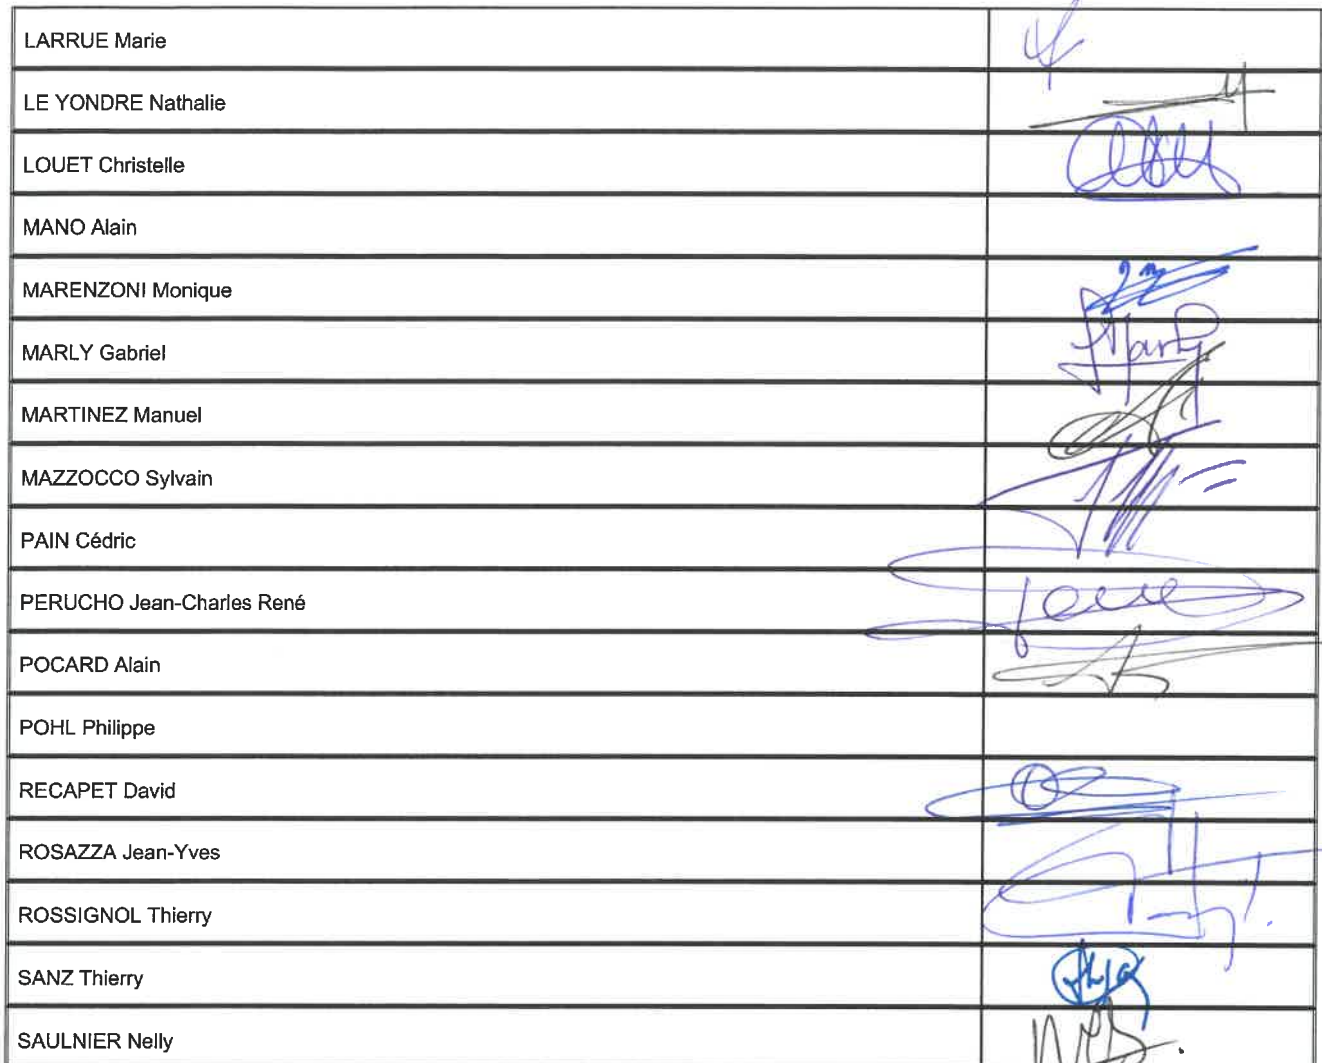 LARRUE Marie
LE YONDRE Nathalie
LOUET Christelle
MANO Alain
MARENZONI Monique
MARLY Gabriel
MARTINEZ Manuel
MAZZOCCO Sylvain
PAIN Cédric
PERUCHO Jean-Charles René
POCARD Alain
POHL Philippe
RECAPET David
ROSAZZA Jean-Yves
ROSSIGNOL Thierry
SANZ Thierry
SAULNIER Nelly